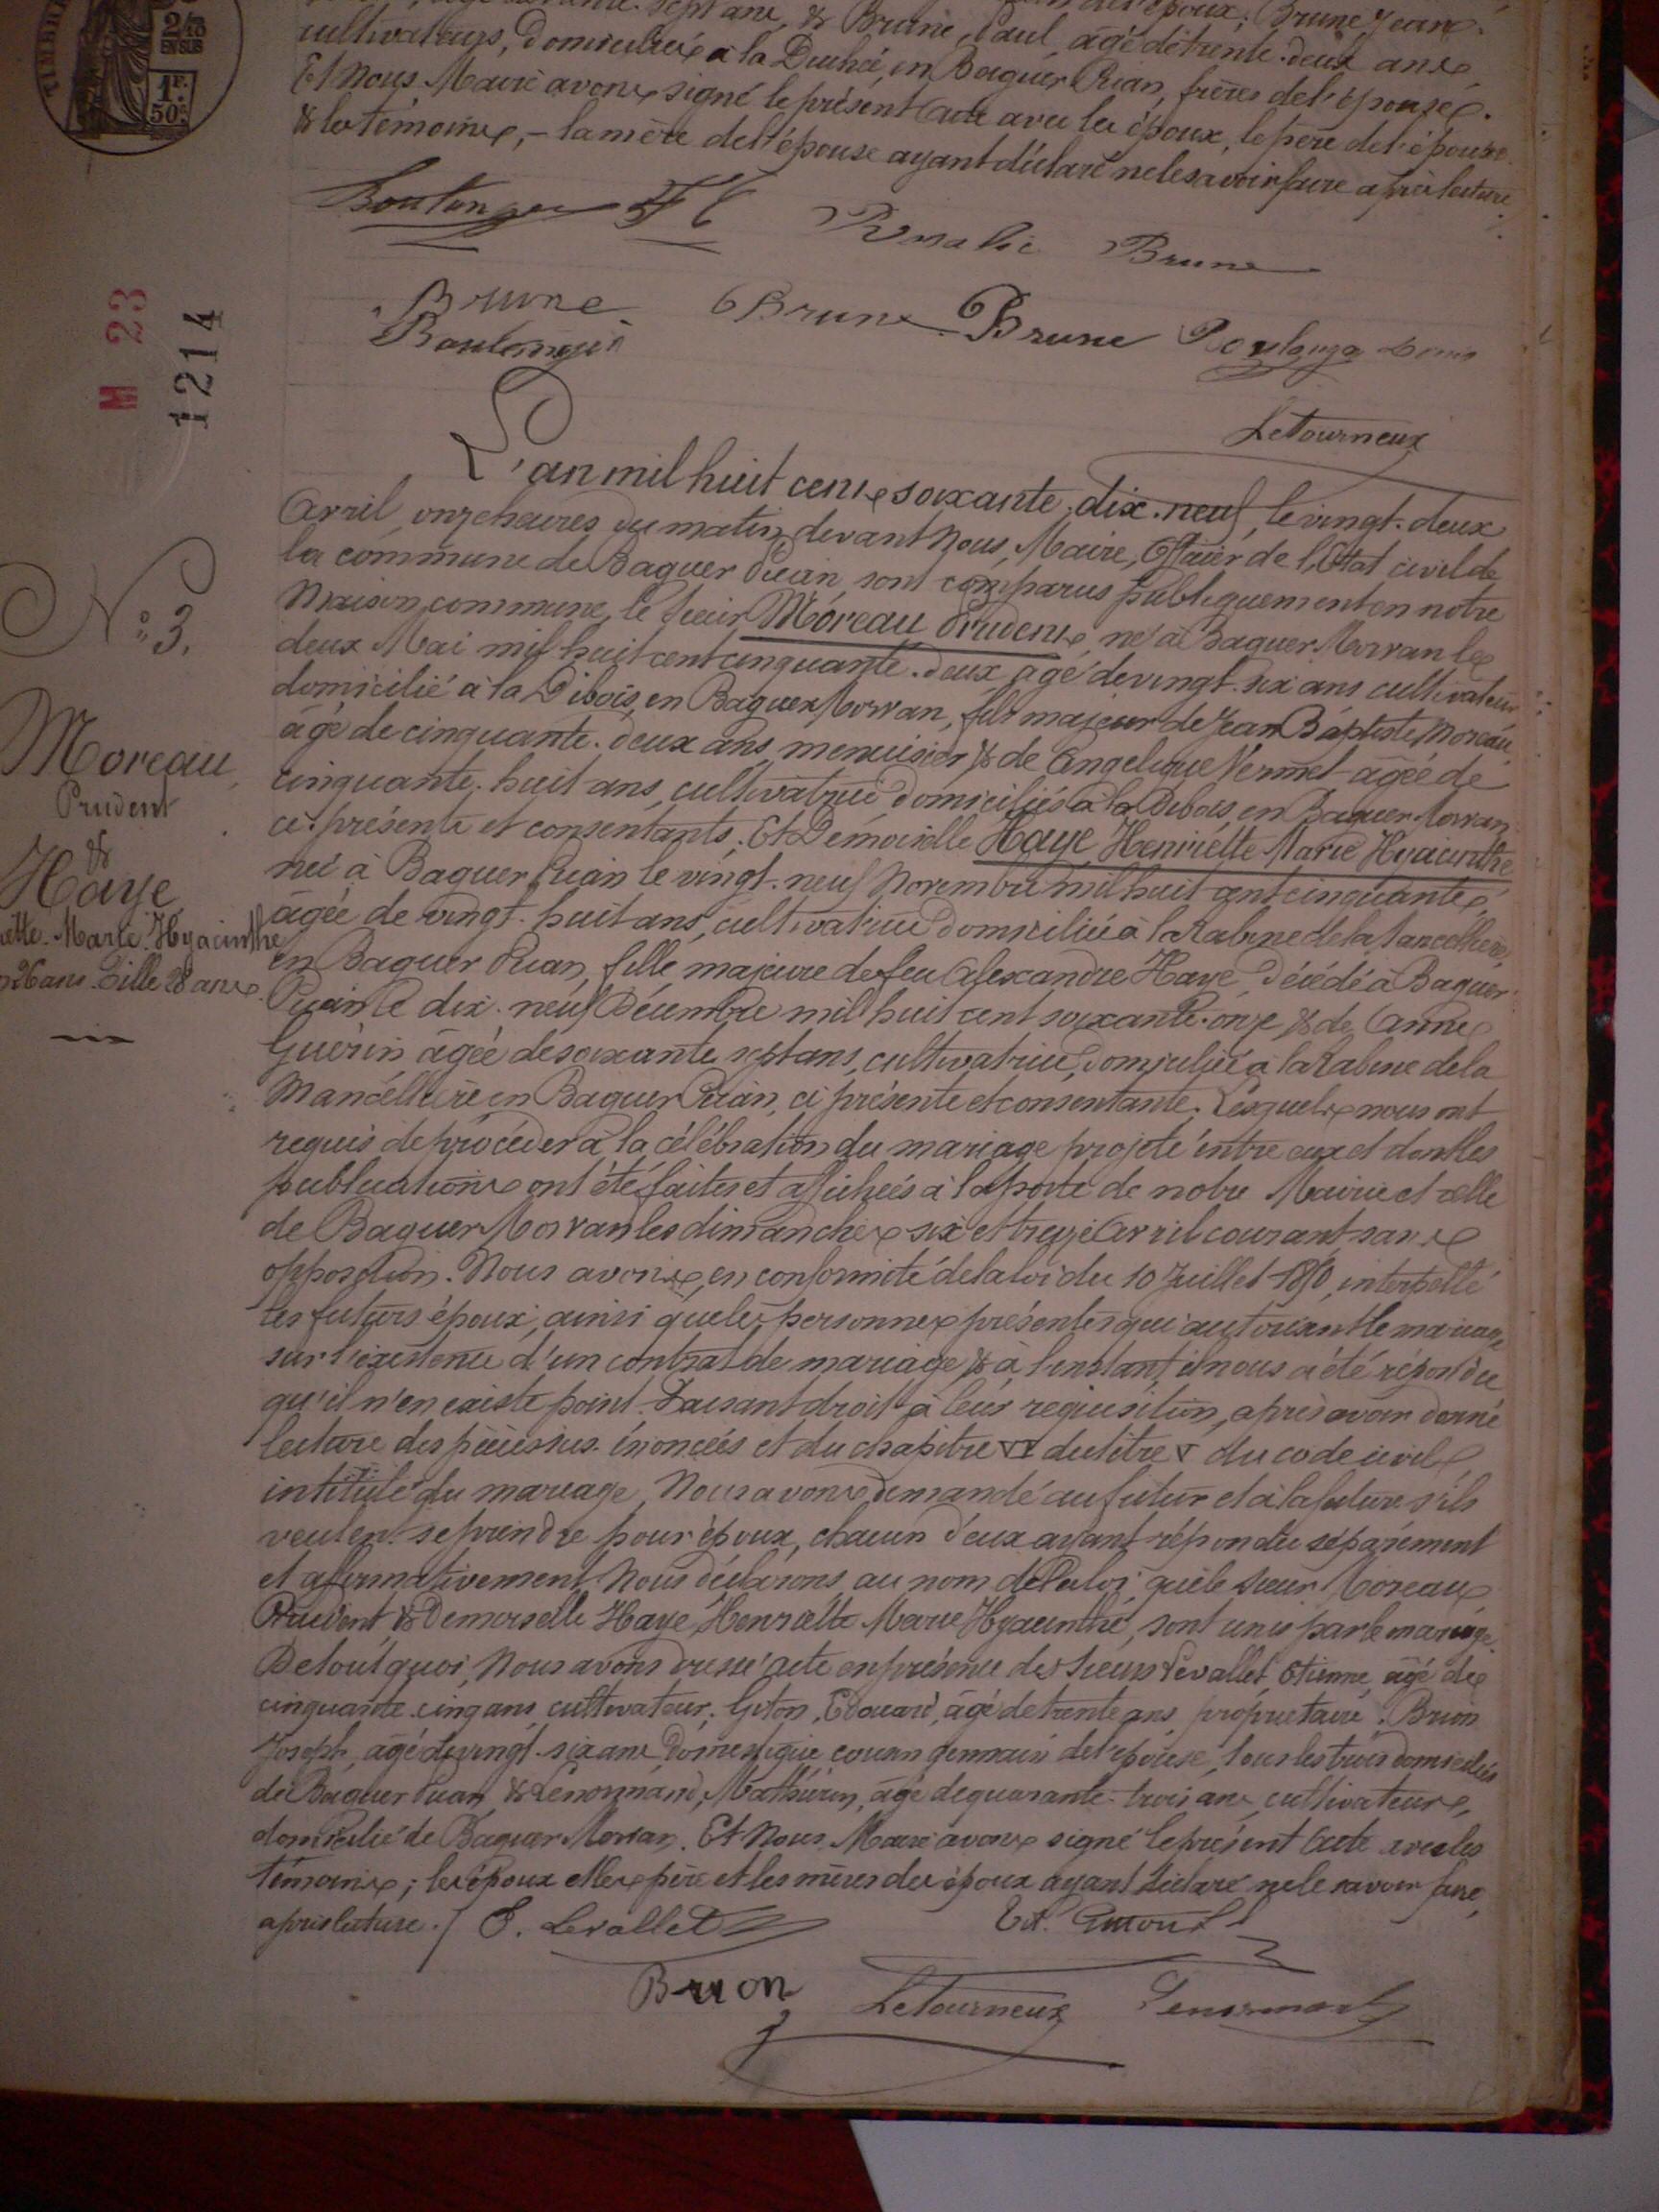 TIMBRE
2/10
EN SUS
1F.
50c.
H 23
1214
ans, & Brune, Paul, âgé de trente-deux ans
cultivateurs, domiciliés à la Duchée, en Baguer Pican, frères de l'épouse.
Et Nous Maire avons signé le présent Acte avec les époux, le père de l'épouse
& les témoins, - la mère de l'épouse ayant déclaré ne le savoir faire après lecture
Rosalie Brune
Brune Brune Brune Boulanger
LeTourneux
N° 3.
Moreau
Prudent
&
Haye
ette Marie Hyacinthe
26 ans. Fille 28 ans
L'an mil huit cent soixante-dix-neuf, le vingt-deux
Avril, onze heures du matin, devant Nous, Maire, Officier de l'Etat civil de
la commune de Baguer Pican, sont comparus publiquement en notre
Maison commune, le sieur Moreau Prudent, né à Baguer Morvan le
deux Mai mil huit cent cinquante-deux, âgé de vingt-six ans cultivateur
domicilié à la Dibois, en Baguer Morvan, fils majeur de Jean Baptiste Moreau
âgé de cinquante-deux ans, menuisier, & de Angelique Vermet âgée de
cinquante-huit ans, cultivatrice domiciliés à la Dibois, en Baguer Morvan
ci-présents et consentants; Et Demoiselle Haye Henriette Marie Hyacinthe
née à Baguer Pican le vingt-neuf Novembre mil huit cent cinquante,
âgée de vingt-huit ans, cultivatrice domiciliée à la Rabine de la Mancellière,
en Baguer Pican, fille majeure de feu Alexandre Haye, décédé à Baguer
Pican le dix-neuf Décembre mil huit cent soixante-onze & de Anne
Guérin âgée de soixante sept ans, cultivatrice, domiciliée à la Rabine de la
Mancellière en Baguer Pican, ci présente et consentante. Lesquels nous ont
requis de procéder à la célébration du mariage projeté entre eux et dont les
publications ont été faites et affichées à la porte de notre Mairie et celle
de Baguer Morvan les dimanches six et treize Avril courant sans
opposition. Nous avons, en conformité de la loi du 10 Juillet 1850, interpellé
les futurs époux, ainsi que les personnes présentes qui autorisent le mariage
sur l'existence d'un contrat de mariage & à l'instant il nous a été répondu
qu'il n'en existe point. Faisant droit à leur réquisition, après avoir donné
lecture des pièces sus-énoncées et du chapitre VI du titre V du code civil
intitulé du mariage, Nous avons demandé au futur et à la future s'ils
veulent se prendre pour époux, chacun d'eux ayant répondu séparément
et affirmativement, Nous déclarons au nom de la loi, que le sieur Moreau
Prudent & Demoiselle Haye Henriette Marie Hyacinthe, sont unis par le mariage.
De tout quoi, Nous avons dressé acte en présence des sieurs Levallet, Etienne, âgé de
cinquante-cinq ans, cultivateur; Guton, Edouard, âgé de trente ans, propriétaire; Brion
Joseph, âgé de vingt-six ans, domestique, cousin germain de l'épouse, tous les trois domiciliés
de Baguer Pican, & Lenormand, Mathurin, âgé de quarante-trois ans cultivateur,
domicilié de Baguer Morvan. Et Nous Maire avons signé le présent Acte avec les
témoins; les époux et le père et les mères des époux ayant déclaré ne le savoir faire,
après lecture. / E. Levallet
Brion LeTourneux Lenormand